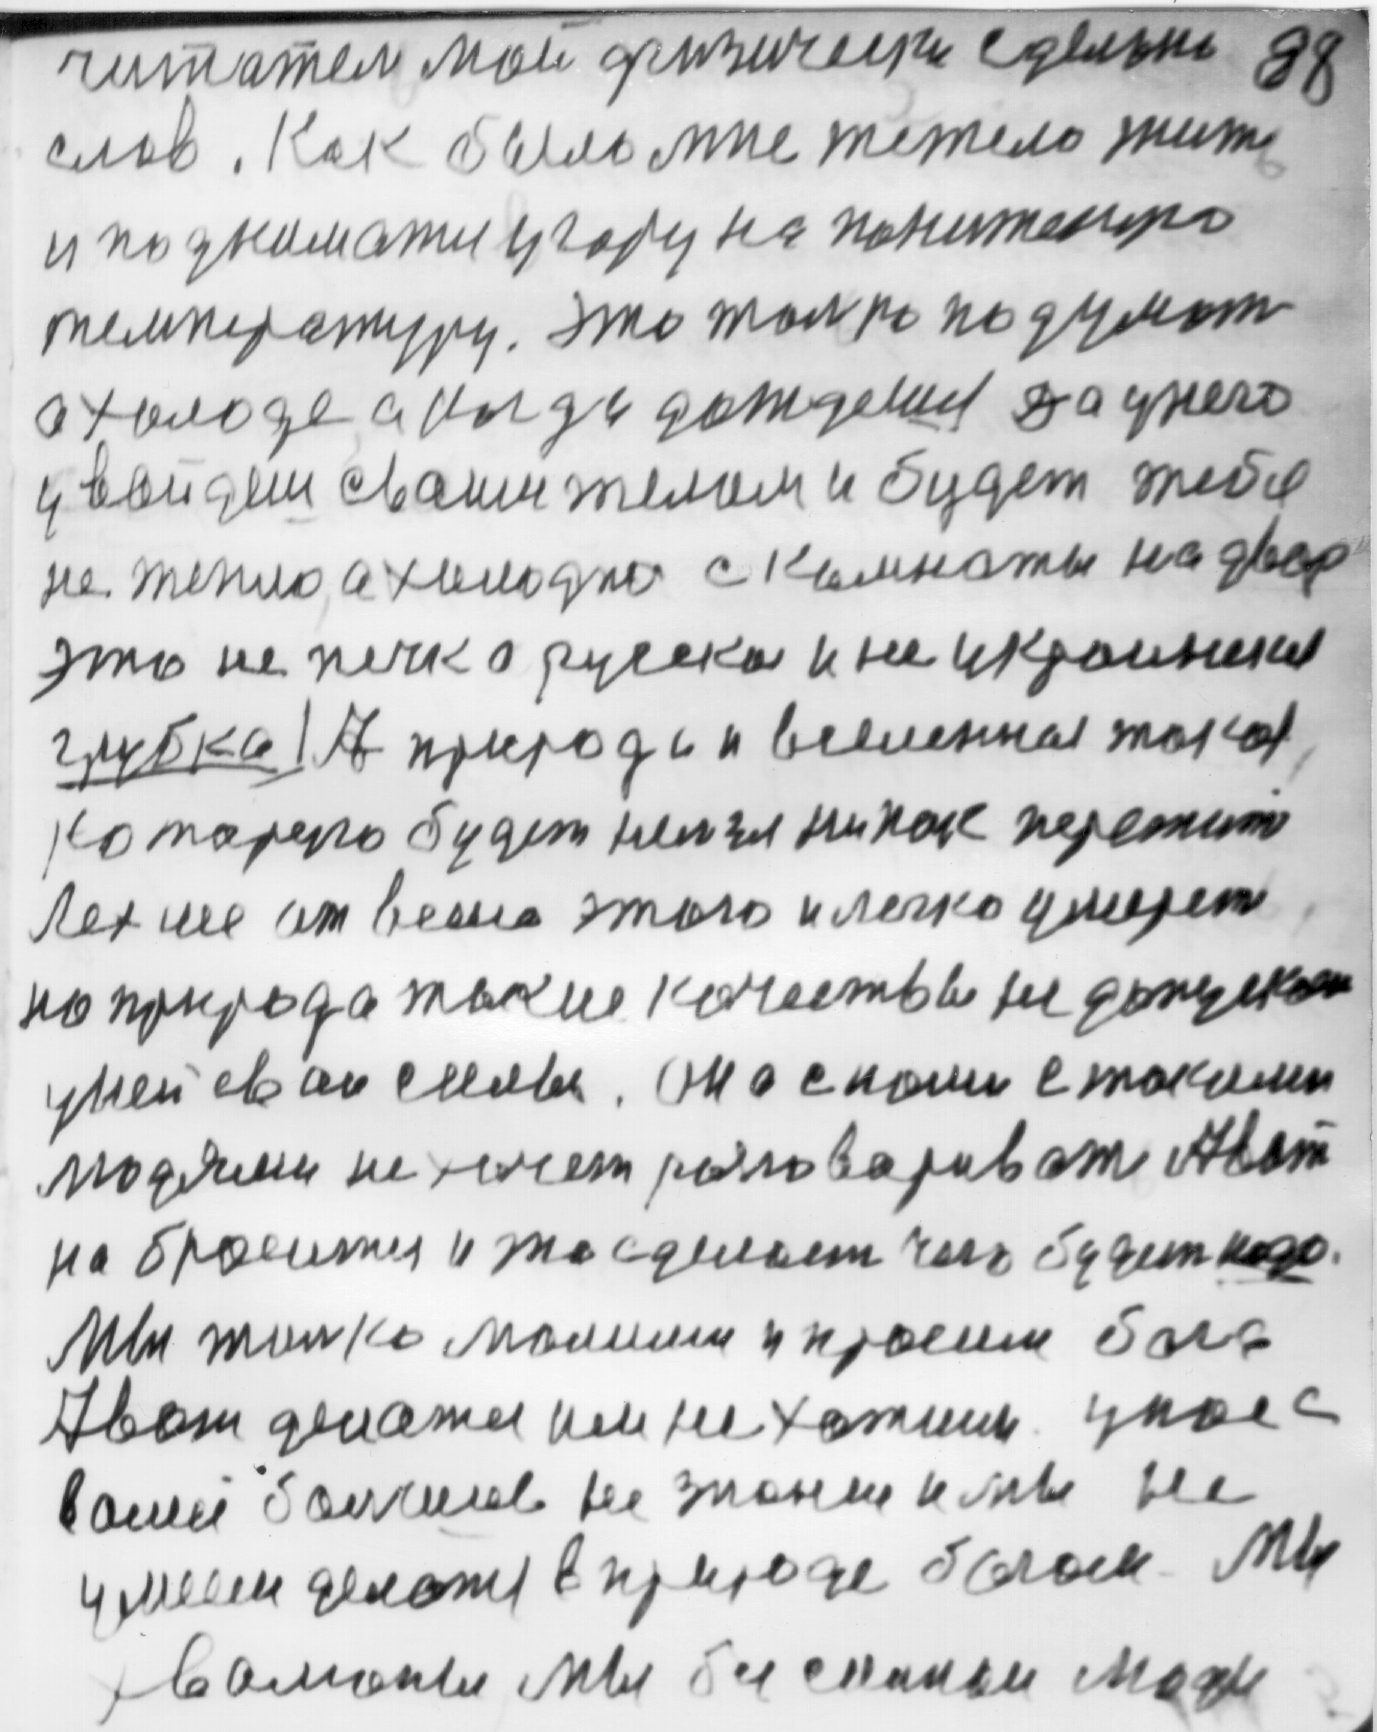 читатель мой физически сделано 98
слов. Как было мне тежело жить
и поднимати угору на пониженую
температуру. Это только подумат
о холоде а когда дождеш за унего
увойдеш своим телом и будет тебе
не тепло, а холодно с комнаты на двор
это не печка руская и не украинская
грубка! А природа и вселенная такая,
которую будет нельзя никак пережит
Лехше от всего этого и легко умерет
но природа такие качества не допускает
у ней свои силы. Она с нами с такими
людями не хочет разговариват А вот
набросится и то сделает чего будет надо.
Мы только молими и просим бога
А вот делати им не хотим. у нас с
вами больших не знании и мы не
умеем делати в природе богом. Мы
хвалоны мы бессильны люди